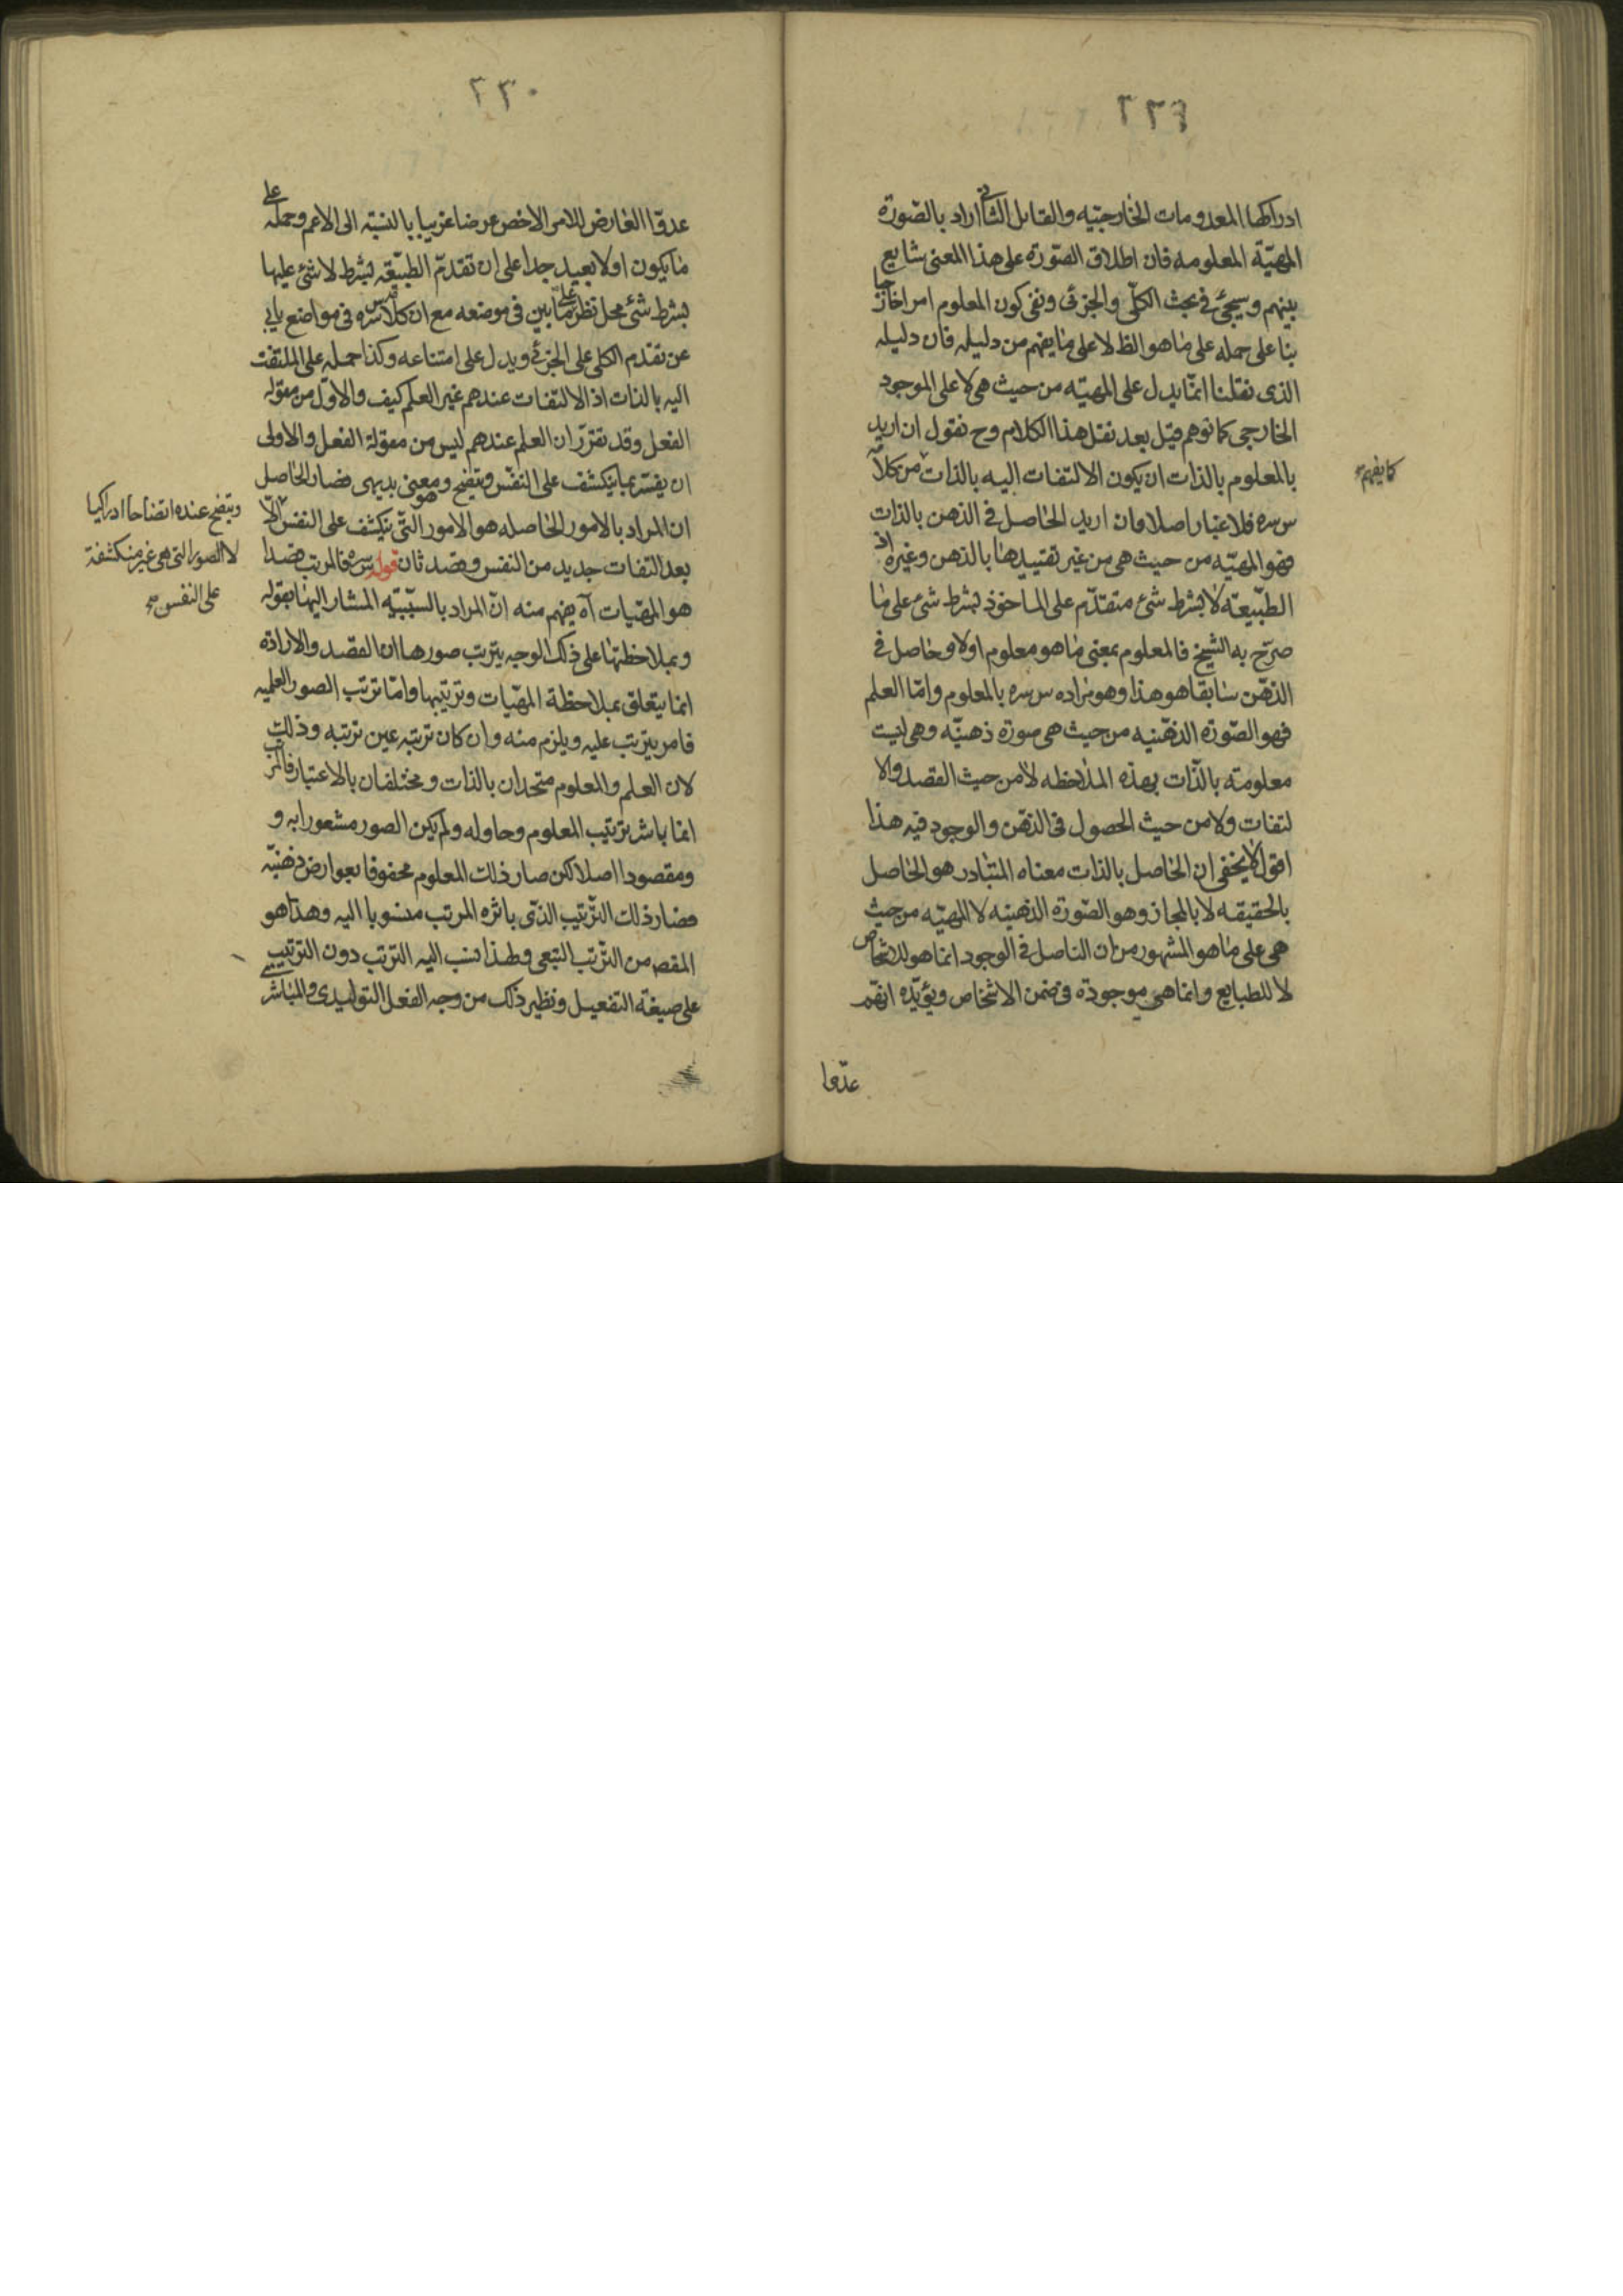 ٢٢٩
ادراكها المعدومات الخارجيّه والقايل الثانى اراد بالصّورة
المهيّة المعلومه فان اطلاق الصّورة على هذا المعنى شايع
بينهم وسيجئ فى بحث الكلّى والجزئى ونفى كون المعلوم امرا خارجيا
بنا على حمله على ما هو الظ لا على ما يفهم من دليله فان دليله
الذى نقلنا انمّا يدل على المهيّه من حيث هى لا على الموجود
الخارجى كما توهم قيل بعد نقل هذا الكلام وح نقول ان اريد
بالمعلوم بالذات ان يكون الالتفات اليه بالذات من كلامه
كما يفهم
س سره فلا غبار اصلا وان اريد الحاصل فى الذهن بالذات
فهو المهيّه من حيث هى من غير تقييدها بالذهن وغيره اذ
الطبيعة لا بشرط شئ متقدّم على الماخوذ بشرط شئ على ما
صرّح به الشيخ فالمعلوم بمعنى ما هو معلوم اولا وحاصل فى
الذهن سابقا هو هذا وهو مراده س سره بالمعلوم وامّا العلم
فهو الصّورة الذهنيه من حيث هى صورة ذهنيّه وهى ليست
معلومة بالذّات بهذه الملاحظه لا من حيث القصد والا
لتفات ولا من حيث الحصول فى الذهن والوجود فيه هذا
اقول لا يخفى ان الحاصل بالذات معناه المتبادر هو الحاصل
بالحقيقه لا بالمجاز وهو الصّورة الذهنيه لا المهيّه من حيث
هى على ما هو المشهور من ان التاصل فى الوجود انما هو للاشخاص
لا للطبايع وانما هى موجودة فى ضمن الاشخاص ويؤيّده انهم
عدّوا
٢٣٠
عدوّا العارض للامر الاخص عرضا غريبا بالنسبة الى الاعم وحمله على
ما يكون اولا بعيد جدا على ان تقدمّ الطبيعة بشرط لا شئ عليها
بشرط شئ محل نظر على ما بين فى موضعه مع ان كلامه قدس سره فى مواضع يابى
عن تقدم الكلى على الجزئى ويدل على امتناعه وكذا حمله على الملتفت
اليه بالذات اذ الالتفات عندهم غير العلم كيف والاول من مقوله
الفعل وقد تقرّر ان العلم عندهم ليس من مقولة الفعل والاولى
ان يفسّر بما ينكشف على النفس ويتضح وهو معنى بديهى فصار الحاصل
ان المراد بالامور الحاصله هو الامور التّى ينكشف على النفس الا
ويتضح عنده اتضاحا ادراكيا
لا الصور التى هى غير منكشفة
على النفس صح
بعد التفات جديد من النفس وقصد ثان قوله س سره فالمرتب قصدا
هو المهيّات آه يفهم منه انّ المراد بالسببيّه المشار اليها بقوله
وبملاحظتها على ذلك الوجه يترتب صورها ان القصد والارادة
انما يتعلق بملاحظة المهيّات وترتيبها وامّا ترتب الصور العلميه
فامر يترتب عليه ويلزم منه وان كان ترتبه عين ترتبه وذلك
لان العلم والمعلوم متحدان بالذات ومختلفان بالاعتبار فالمرتب
انما باشر ترتيب المعلوم وحاوله ولم يكن الصور مشعورا به و
ومقصودا اصلا لكن صار ذلك المعلوم محفوفا بعوارض ذهنيّه
فصار ذلك الترّتيب الذى باشره المرتب منسوبا اليه وهذا هو
المقصه من الترّتب التبعى ولهذا نسب اليه الترتب دون الترتيب
على صيغة التفعيل ونظير ذلك من وجه الفعل التوليدى والمباشرى